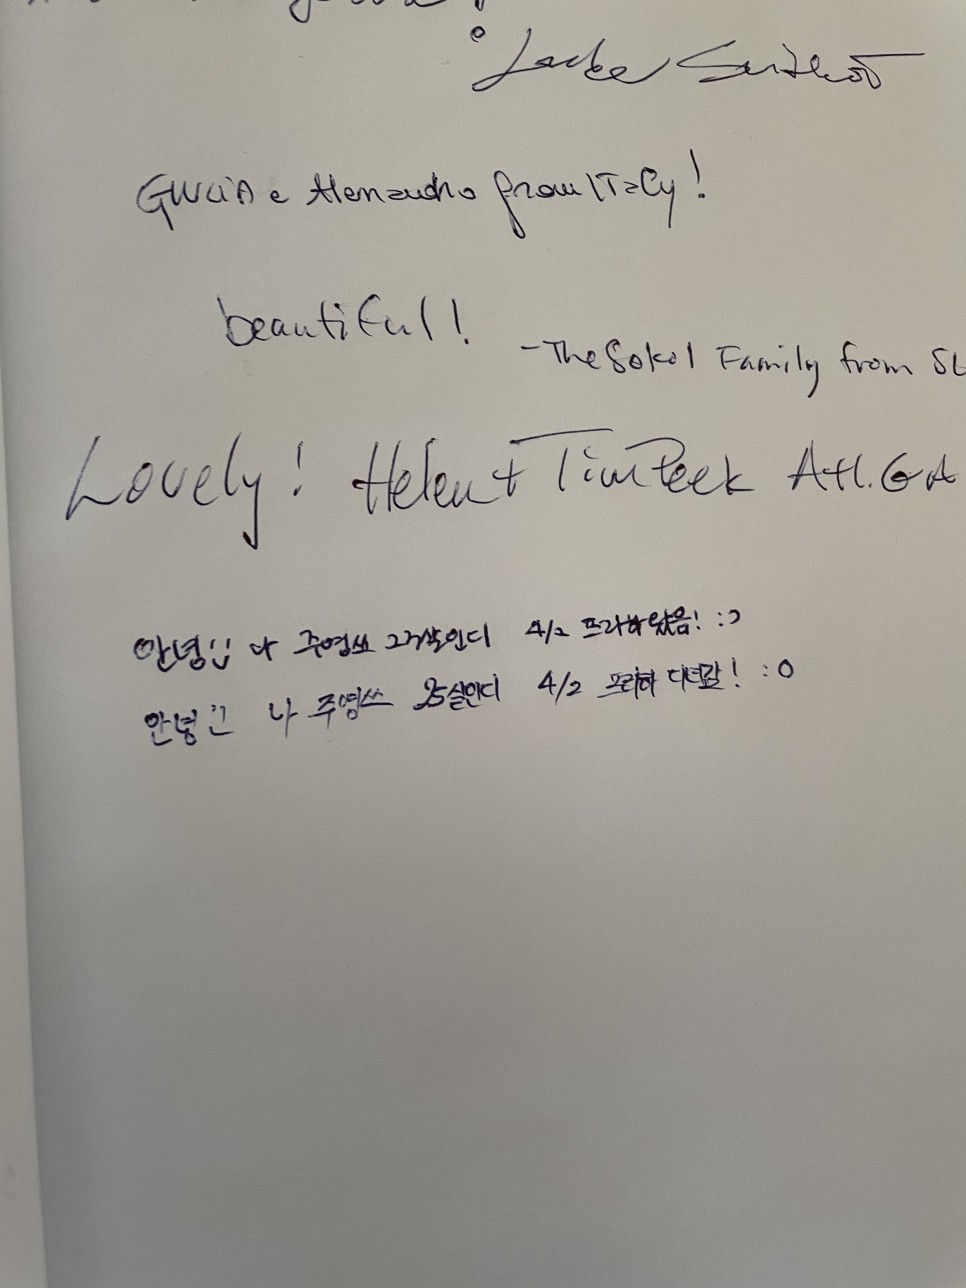 GiuliA e Alenzudno from ITaly!
beautiful!
-The Sokol Family from SL
Lovely! Helen + Tim Peek Atl. GA
안녕!! 나 주영쓰 23살인디 4/2 프라하 왔음! :)
안녕!! 나 주영쓰 25살인디 4/2 프라하 다녀감! :O